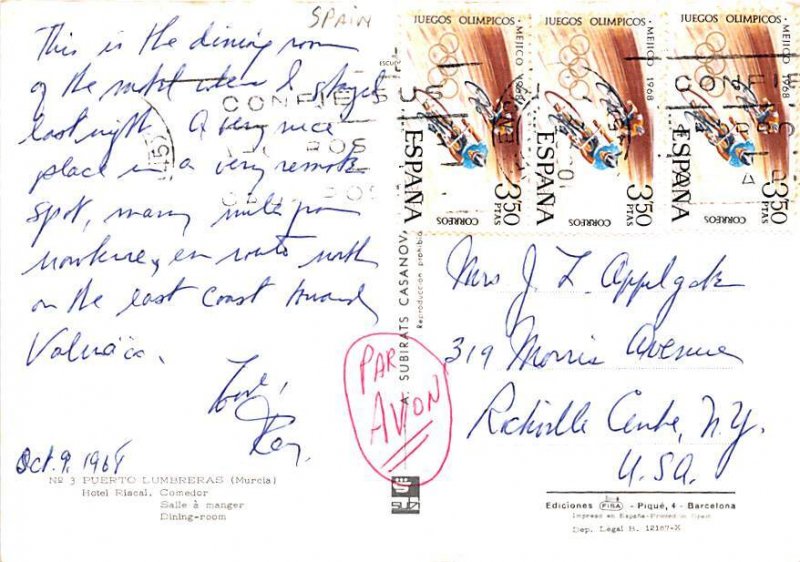 SPAIN
This is the dining room
of the motel where I stayed
last night. A very nice
place in a very remote
spot, many miles from
nowhere, en route north
on the east coast toward
Valencia.
Love,
Ray.
Oct. 9, 1968
Nº 3 PUERTO LUMBRERAS (Murcia)
Hotel Riscal. Comedor
Salle à manger
Dining-room
A. SUBIRATS CASANOVAS
Reproducción prohibida
PAR
AVION
JUEGOS OLIMPICOS - MEJICO 1968
ESPAÑA
CORREOS
3,50
PTAS
JUEGOS OLIMPICOS - MEJICO 1968
ESPAÑA
CORREOS
3,50
PTAS
JUEGOS OLIMPICOS - MEJICO 1968
ESPAÑA
CORREOS
3,50
PTAS
Mrs J L Applegate
319 Morris Avenue
Rockville Centre, N.Y.
U.S.A.
Ediciones FISA - Piqué, 4 - Barcelona
Impreso en España-Printed in Spain
Dep. Legal B. 12167-X